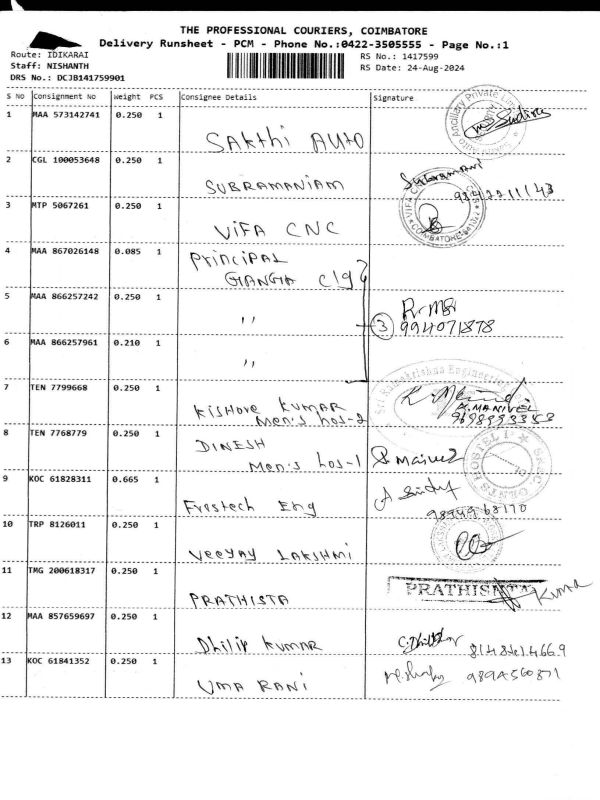 THE PROFESSIONAL COURIERS, COIMBATORE
Delivery Runsheet - PCM - Phone No.:0422-3505555 - Page No.:1
Route: IDIKARAI
RS No.: 1417599
Staff: NISHANTH
RS Date: 24-Aug-2024
DRS No.: DCJB141759901
S No Consignment No Weight PCS Consignee Details Signature
1 MAA 573142741 0.250 1
SAKthi AUTO
2 CGL 100053648 0.250 1
SUBRAMANIAM
Subramani
3 MTP 5067261 0.250 1
ViFA CNC
4 MAA 867026148 0.085 1
Principal
GANGA clg
5 MAA 866257242 0.250 1
"
3
994071878
6 MAA 866257961 0.210 1
"
7 TEN 7799668 0.250 1
Kishore KUMAR
Men's hos-2
K. MANIVEL
8 TEN 7768779 0.250 1
DINESH
Men's hos-1
9 KOC 61828311 0.665 1
Frostech Eng
98949 68170
10 TRP 8126011 0.250 1
Veeyay LAKSHMI
11 TMG 200618317 0.250 1
PRATHISTA
Kumar
12 MAA 857659697 0.250 1
Dhilip Kumar
13 KOC 61841352 0.250 1
UMA RANI
9894560871